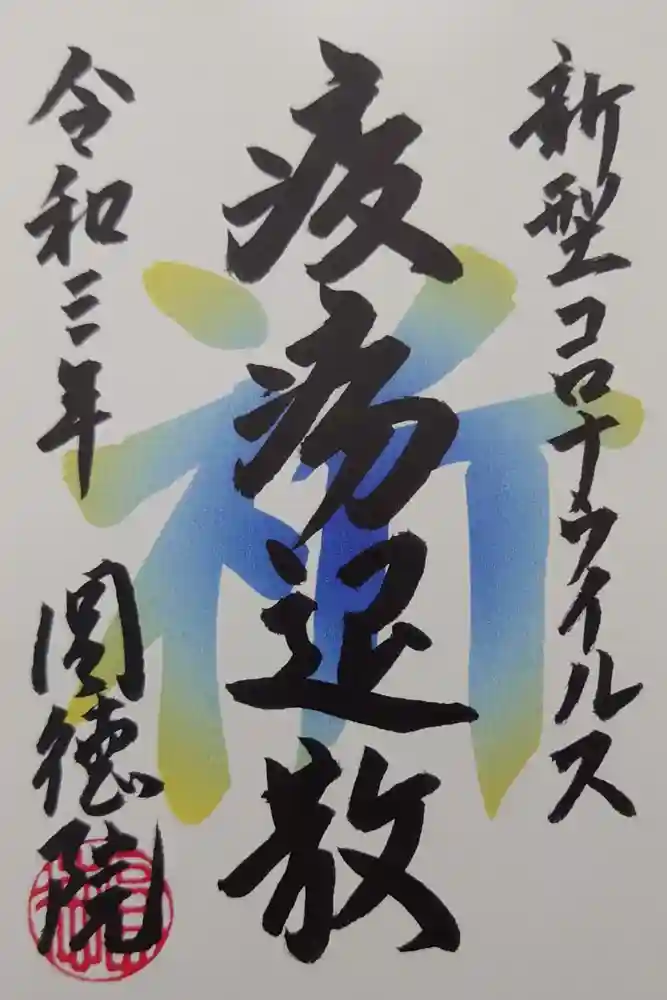 新型コロナウイルス
疫疠退散
祈
令和三年
圓徳院